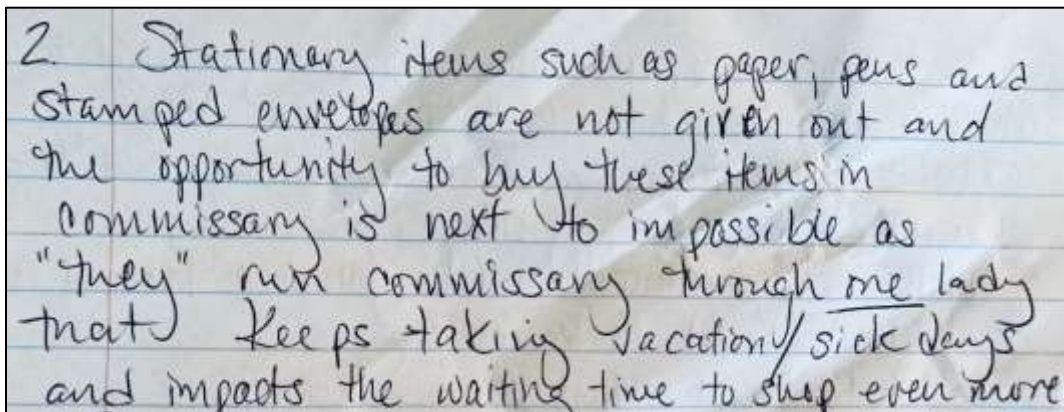 2. Stationary items such as paper, pens and
stamped envelopes are not given out and
the opportunity to buy these items in
commissary is next to impossible as
"they" run commissary through one lady
that keeps taking vacation/sick days
and impacts the waiting time to shop even more